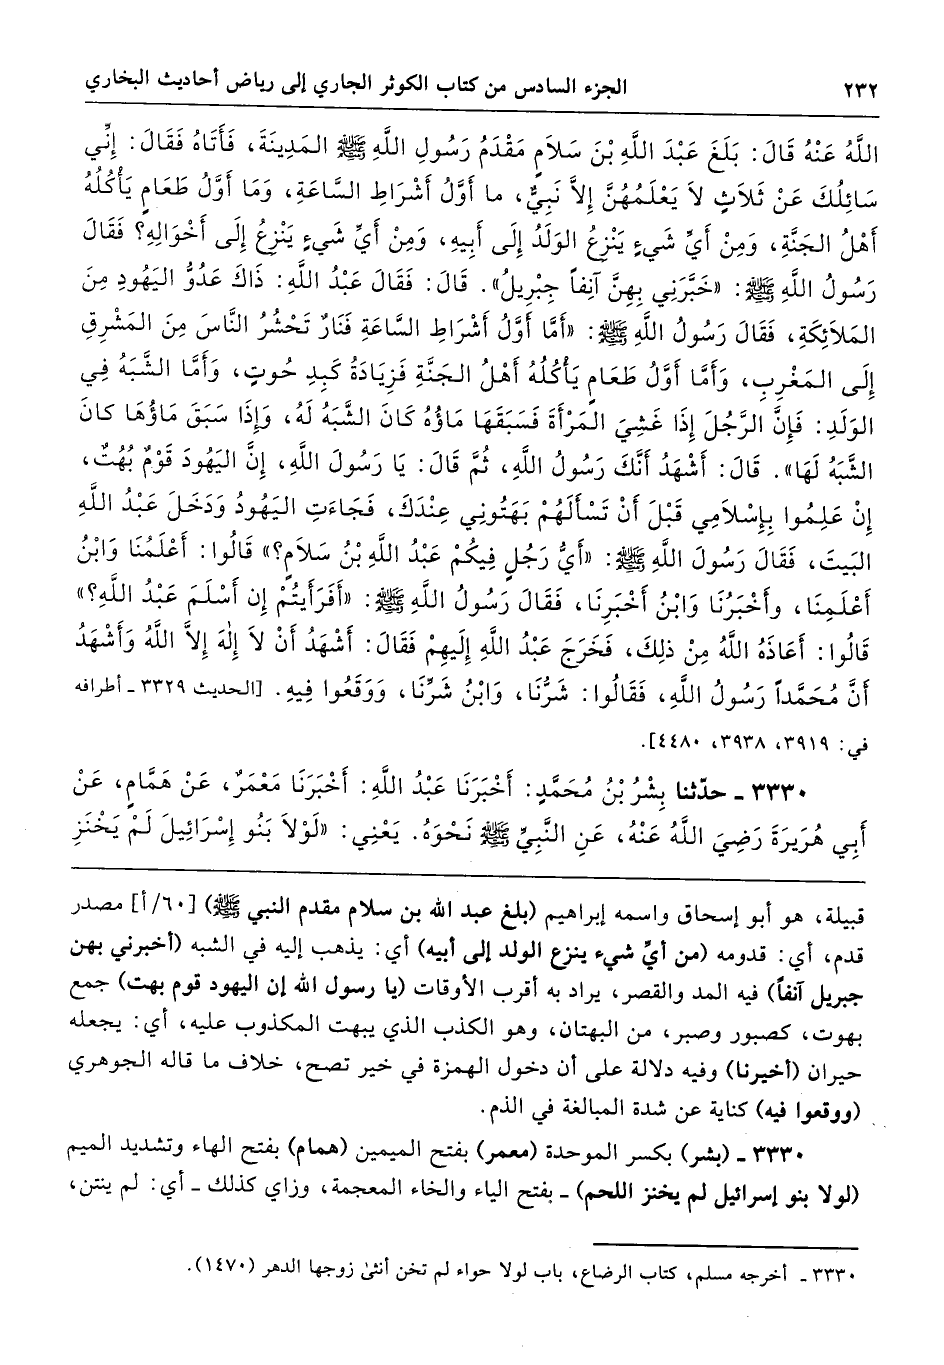 ٢٣٢ الجزء السادس من كتاب الكوثر الجاري إلى رياض أحاديث البخاري
اللَّهُ عَنْهُ قَالَ: بَلَغَ عَبْدَ اللَّهِ بْنَ سَلَامٍ مَقْدَمُ رَسُولِ اللَّهِ ﷺ المَدِينَةَ، فَأَتَاهُ فَقَالَ: إِنِّي
سَائِلُكَ عَنْ ثَلَاثٍ لاَ يَعْلَمُهُنَّ إِلاَّ نَبِيٌّ، ما أَوَّلُ أَشْرَاطِ السَّاعَةِ، وَمَا أَوَّلُ طَعَامٍ يَأْكُلُهُ
أَهْلُ الجَنَّةِ، وَمِنْ أَيِّ شَيءٍ يَنْزِعُ الوَلَدُ إِلَى أَبِيهِ، وَمِنْ أَيِّ شَيءٍ يَنْزِعُ إِلَى أَخْوَالِهِ؟ فَقَالَ
رَسُولُ اللَّهِ ﷺ: «خَبَّرَنِي بِهِنَّ آنِفاً جِبْرِيلُ». قَالَ: فَقَالَ عَبْدُ اللَّهِ: ذَاكَ عَدُوُّ اليَهُودِ مِنَ
المَلاَئِكَةِ، فَقَالَ رَسُولُ اللَّهِ ﷺ: «أَمَّا أَوَّلُ أَشْرَاطِ السَّاعَةِ فَنَارٌ تَحْشُرُ النَّاسَ مِنَ المَشْرِقِ
إِلَى المَغْرِبِ، وَأَمَّا أَوَّلُ طَعَامٍ يَأْكُلُهُ أَهْلُ الجَنَّةِ فَزِيَادَةُ كَبِدِ حُوتٍ، وَأَمَّا الشَّبَهُ فِي
الوَلَدِ: فَإِنَّ الرَّجُلَ إِذَا غَشِيَ المَرْأَةَ فَسَبَقَهَا مَاؤُهُ كَانَ الشَّبَهُ لَهُ، وَإِذَا سَبَقَ مَاؤُهَا كانَ
الشَّبَهُ لَهَا». قَالَ: أَشْهَدُ أَنَّكَ رَسُولُ اللَّهِ، ثُمَّ قَالَ: يَا رَسُولَ اللَّهِ، إِنَّ اليَهُودَ قَوْمٌ بُهُتٌ،
إِنْ عَلِمُوا بِإِسْلاَمِي قَبْلَ أَنْ تَسْأَلَهُمْ بَهَتُونِي عِنْدَكَ، فَجَاءَتِ اليَهُودُ وَدَخَلَ عَبْدُ اللَّهِ
البَيتَ، فَقَالَ رَسُولُ اللَّهِ ﷺ: «أَيُّ رَجُلٍ فِيكُمْ عَبْدُ اللَّهِ بْنُ سَلَامٍ؟» قَالُوا: أَعْلَمُنَا وَابْنُ
أَعْلَمِنَا، وأَخْبَرُنَا وَابْنُ أَخْبَرِنَا، فَقَالَ رَسُولُ اللَّهِ ﷺ: «أَفَرَأَيتُمْ إِن أَسْلَمَ عَبْدُ اللَّهِ؟»
قَالُوا: أَعَاذَهُ اللَّهُ مِنْ ذلِكَ، فَخَرَجَ عَبْدُ اللَّهِ إِلَيهِمْ فَقَالَ: أَشْهَدُ أَنْ لاَ إِلٰهَ إِلاَّ اللَّهُ وَأَشْهَدُ
أَنَّ مُحَمَّداً رَسُولُ اللَّهِ، فَقَالُوا: شَرُّنَا، وَابْنُ شَرِّنَا، وَوَقَعُوا فِيهِ. [الحديث ٣٣٢٩ ـ أطرافه
في: ٣٩١٩، ٣٩٣٨، ٤٤٨٠].
٣٣٣٠ ـ حدّثنا بِشْرُ بْنُ مُحَمَّدٍ: أَخْبَرَنَا عَبْدُ اللَّهِ: أَخْبَرَنَا مَعْمَرٌ، عَنْ هَمَّامٍ، عَنْ
أَبِي هُرَيرَةَ رَضِيَ اللَّهُ عَنْهُ، عَنِ النَّبِيِّ ﷺ نَحْوَهُ. يَعْنِي: «لَوْلاَ بَنُو إِسْرَائِيلَ لَمْ يَخْنَزِ
قبيلة، هو أبو إسحاق واسمه إبراهيم (بلغ عبد الله بن سلام مقدم النبي ﷺ) [٦٠/أ] مصدر
قدم، أي: قدومه (من أيِّ شيء ينزع الولد إلى أبيه) أي: يذهب إليه في الشبه (أخبرني بهن
جبريل آنفاً) فيه المد والقصر، يراد به أقرب الأوقات (يا رسول الله إن اليهود قوم بهت) جمع
بهوت، كصبور وصبر، من البهتان، وهو الكذب الذي يبهت المكذوب عليه، أي: يجعله
حيران (أخيرنا) وفيه دلالة على أن دخول الهمزة في خير تصح، خلاف ما قاله الجوهري
(ووقعوا فيه) كناية عن شدة المبالغة في الذم.
٣٣٣٠ ـ (بشر) بكسر الموحدة (معمر) بفتح الميمين (همام) بفتح الهاء وتشديد الميم
(لولا بنو إسرائيل لم يخنز اللحم) ـ بفتح الياء والخاء المعجمة، وزاي كذلك ـ أي: لم ينتن،
٣٣٣٠ ـ أخرجه مسلم، كتاب الرضاع، باب لولا حواء لم تخن أنثىٰ زوجها الدهر (١٤٧٠).